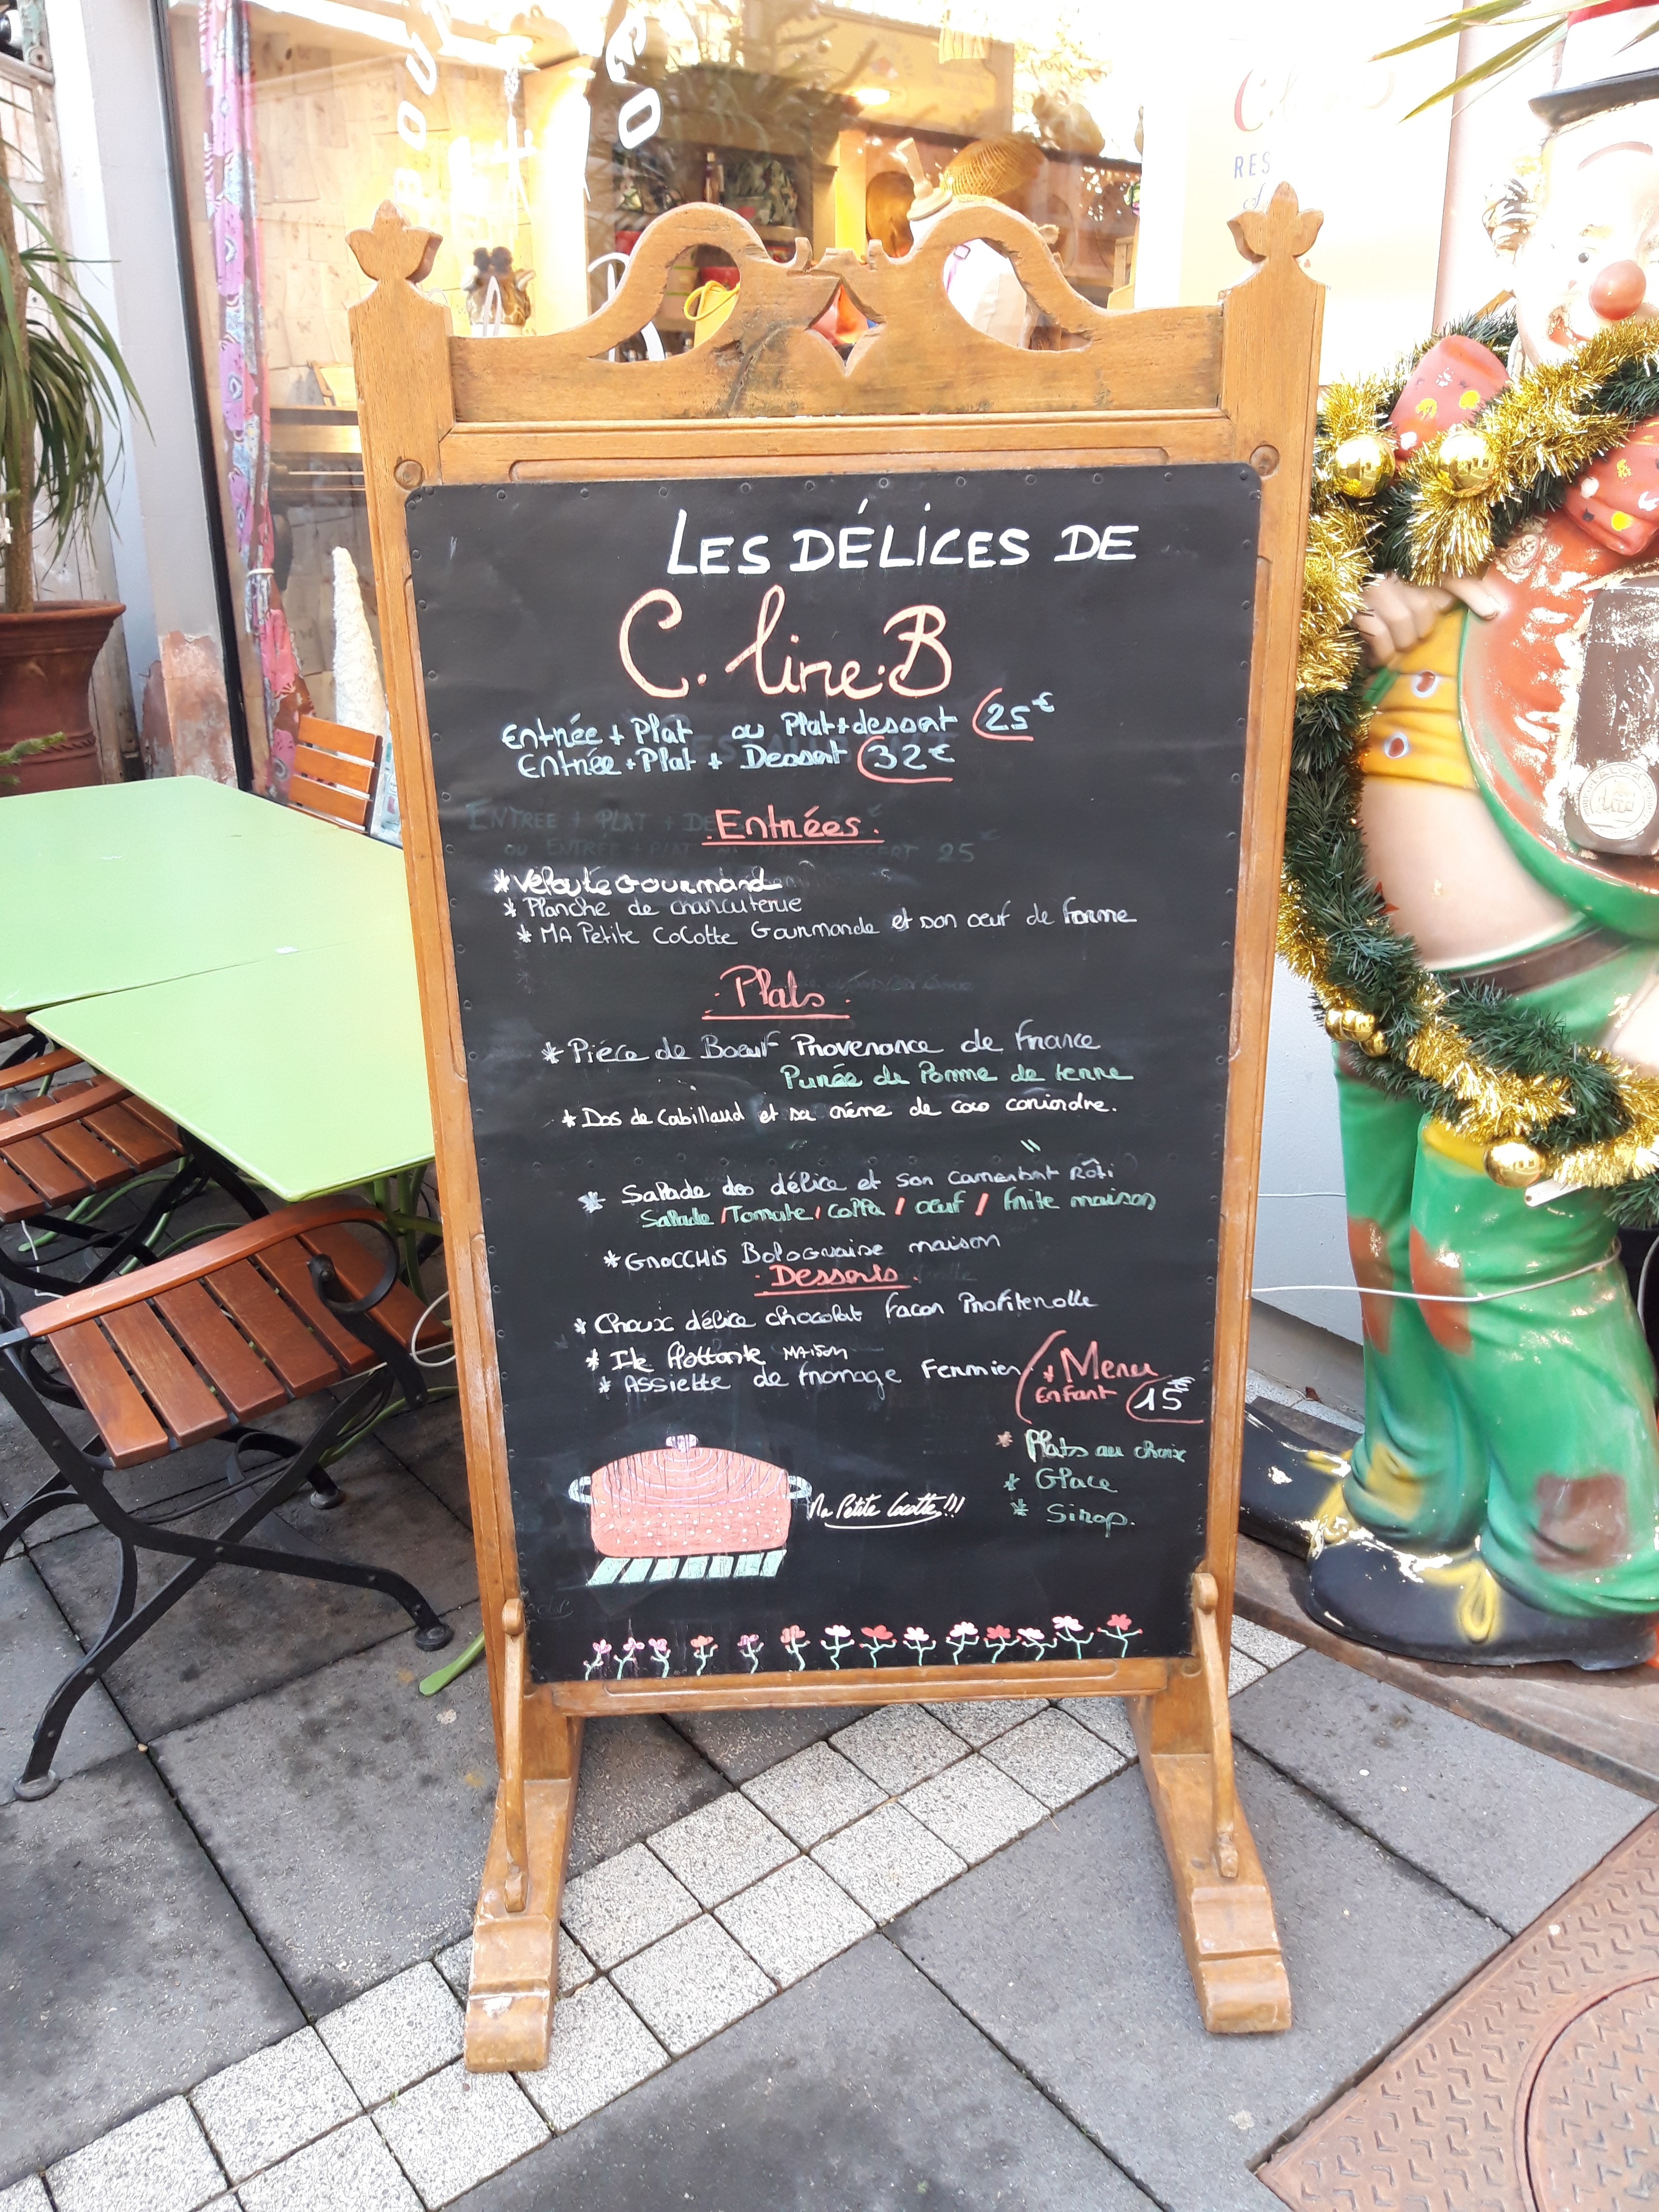 LES DÉLICES DE
C.line.B
Entrée + Plat ou Plat+dessert 25€
Entrée+Plat + Dessert 32€
Entrées.
*Velouté Gourmand
* Planche de charcuterie
* MA Petite Cocotte Gourmande et son œuf de ferme
.Plats.
*Piéce de Boeuf Provenance de France
Purée de Pomme de terre
* Dos de Cabillaud et sa crème de coco coriandre.
" "
* Salade des délice et son Camembert Rôti
Salade / Tomate / Coppa / œuf / frite maison
*GNOCCHIS Bolognaise maison
.Desserts.
* Choux délice chocolat facon Profiterolle
* Ile flottante MAISON
* Assiette de fromage Fermier
* Menu
Enfant 15€
* Plats au choix
* Glace
* Sirop.
Ma Petite Cocotte!!!
RES